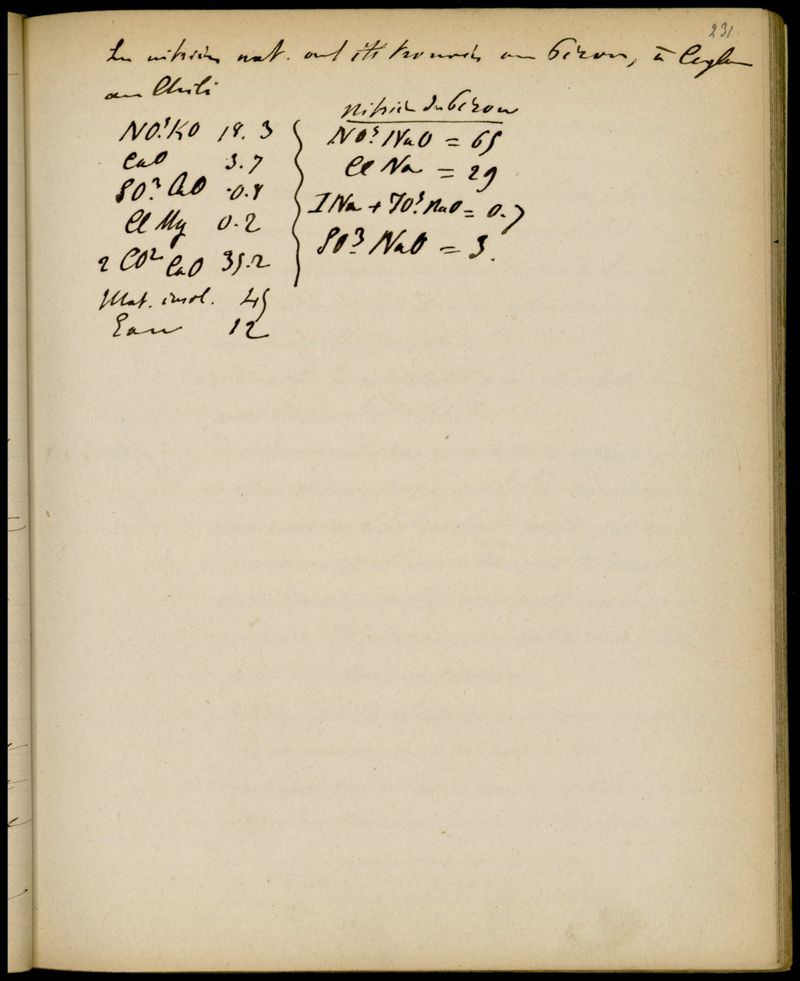 231.
Les nitrières nat. ont été trouvés au Pérou, à Ceylan
au Chili
NO⁵KO 18.3
CaO 3.7
SO³ CaO 0.8
Cl Mg 0.2
2 CO² CaO 35.2
Mat. insol. 45
Eau 12
Nitrière du Pérou
NO⁵ NaO = 65
Cl Na = 29
INa + IO⁵ NaO = 0.7
SO³ NaO = 3.